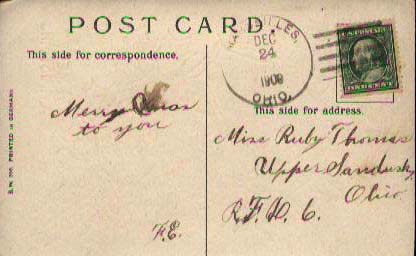 POST CARD.
This side for correspondence.
DEC
24
1909
OHIO.
This side for address.
Merry Xmas
to you
F.E.
Miss Ruby Thomas
Upper Sandusky
Ohio
R.F.D. 6.
PRINTED IN GERMANY